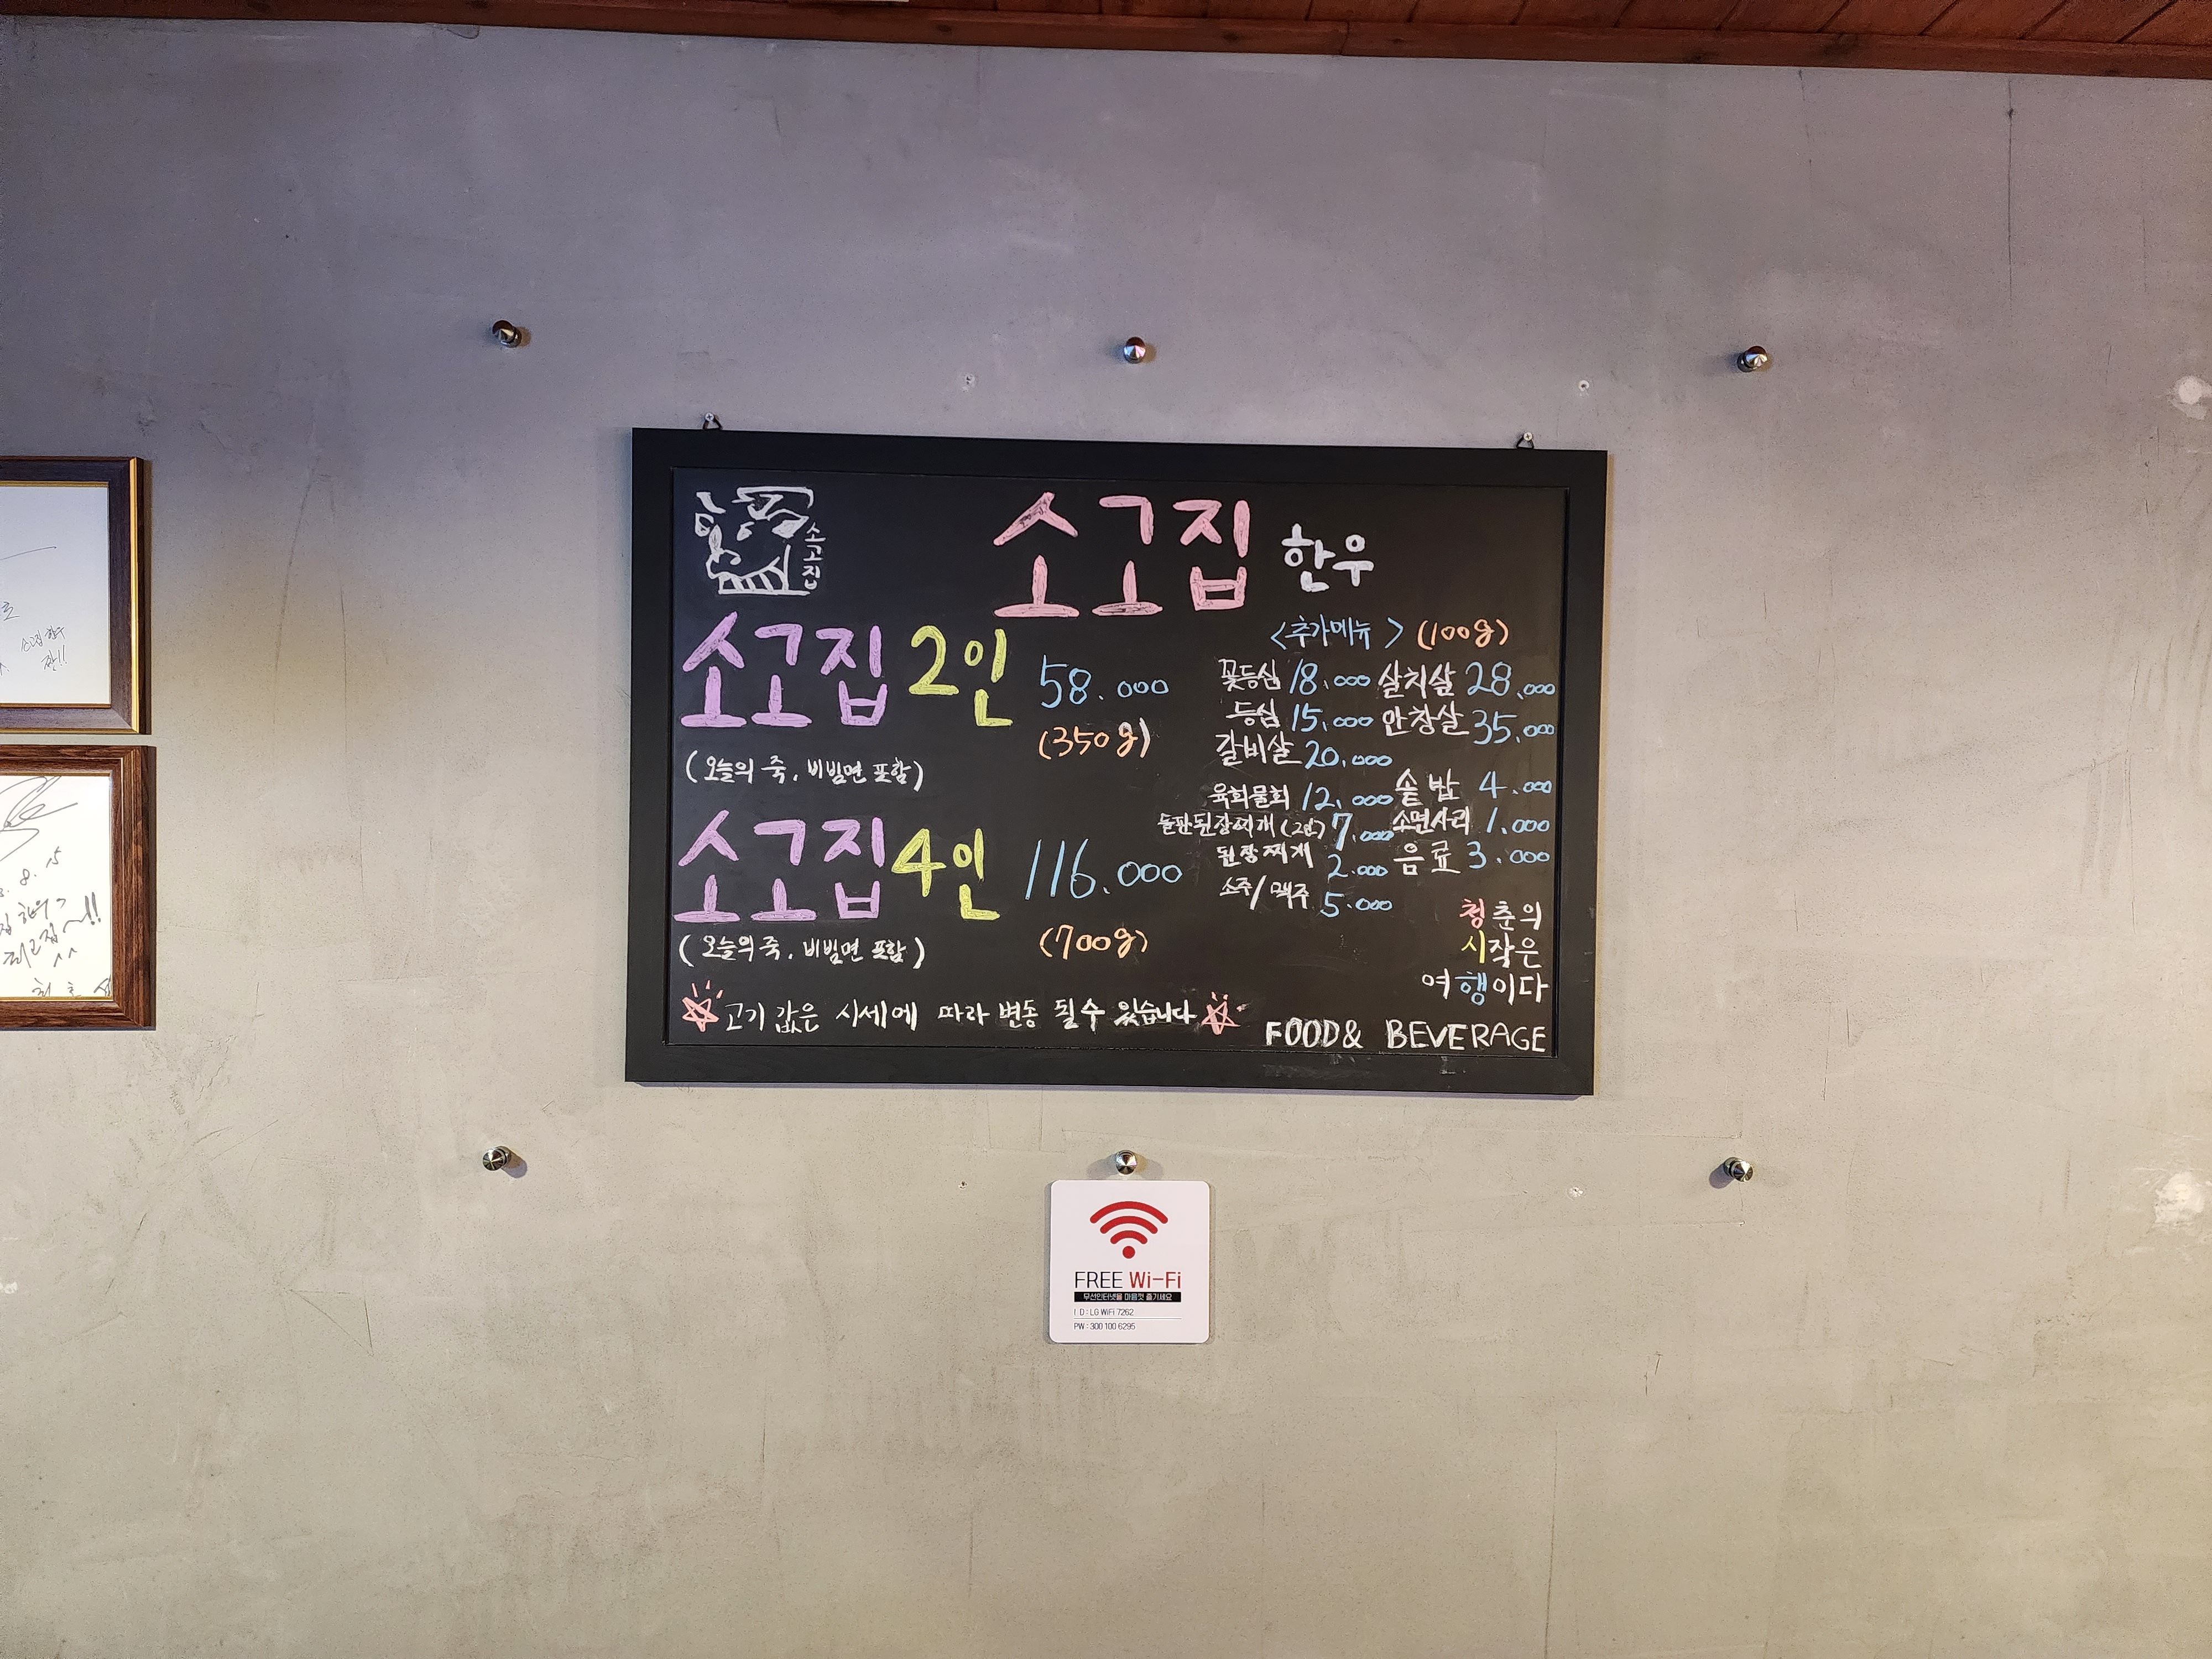 소고집
소고집 한우
소고집 2인 58.000
(350g)
(오늘의 죽, 비빔면 포함)
소고집 4인 116.000
(700g)
(오늘의 죽, 비빔면 포함)
고기 값은 시세에 따라 변동 될 수 있습니다
<추가메뉴> (100g)
꽃등심 18.000 살치살 28.000
등심 15.000 안창살 35.000
갈비살 20.000
육회물회 12.000 솥밥 4.000
돌판된장찌개 (2인) 7.000 소면사리 1.000
된장찌개 2.000 음료 3.000
소주/맥주 5.000
청춘의
시작은
여행이다
FOOD & BEVERAGE
FREE Wi-Fi
무선인터넷을 마음껏 즐기세요
I D : LG WiFi 7262
PW : 300 100 6295
8. 15